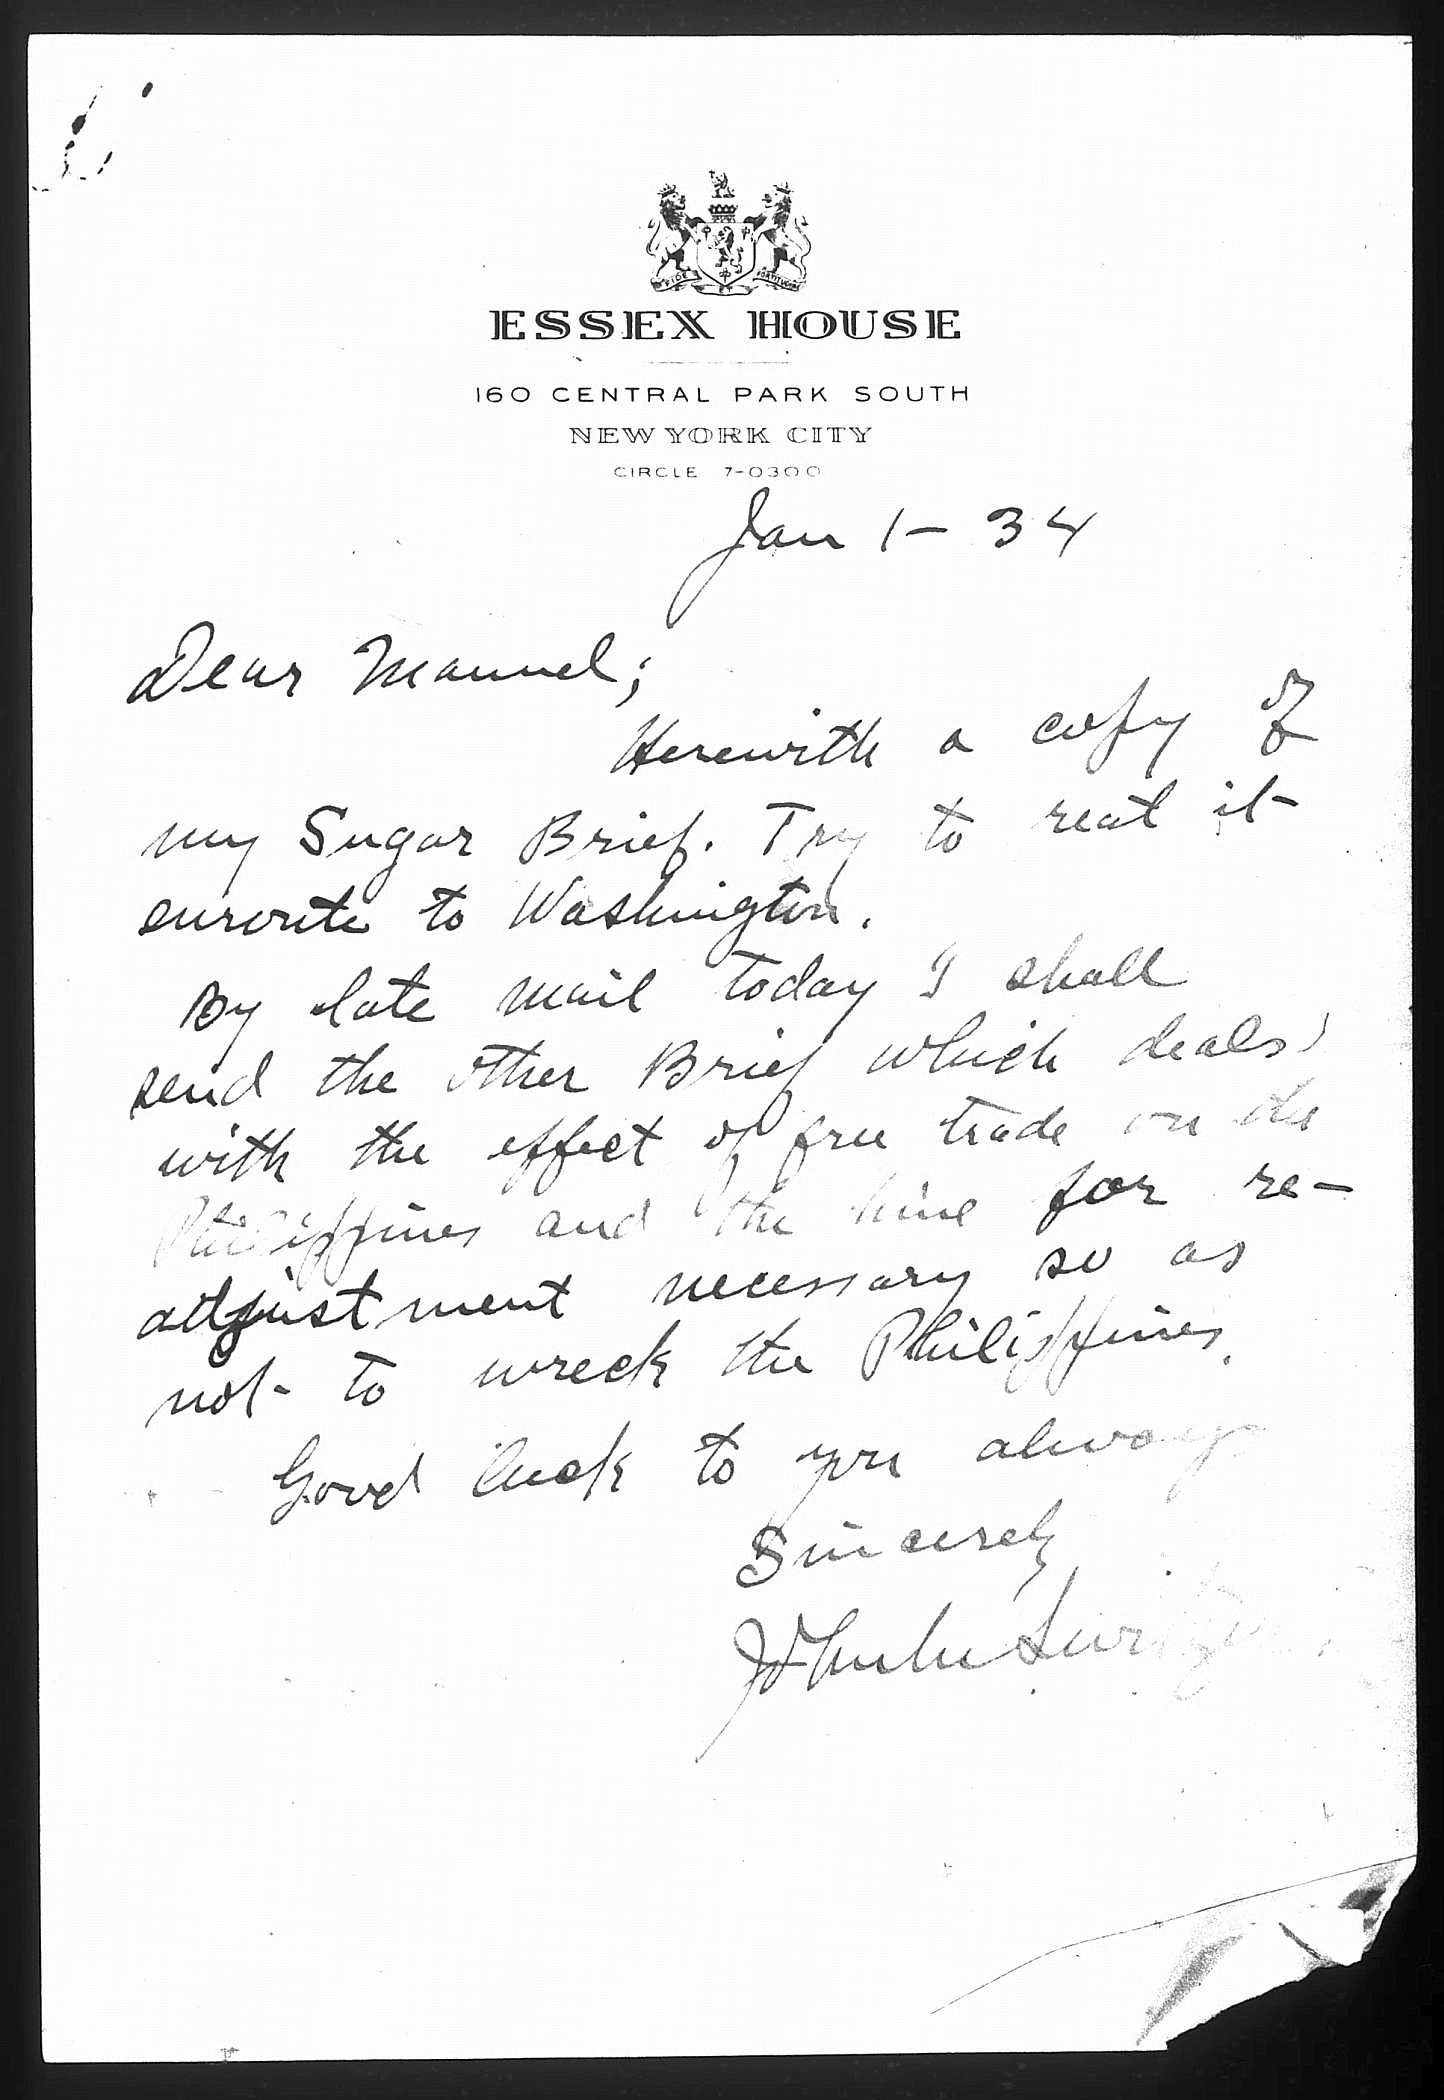 FIDE ET FORTITUDINE
ESSEX HOUSE
160 CENTRAL PARK SOUTH
NEW YORK CITY
CIRCLE 7-0300
Jan 1 - 34
Dear Manuel;
Herewith a copy of
my Sugar Brief. Try to read it
enroute to Washington.
By late mail today I shall
send the other Brief which deals
with the effect of free trade on the
Philippines and the time for re-
adjustment necessary so as
not to wreck the Philippines.
Good luck to you always
Sincerely